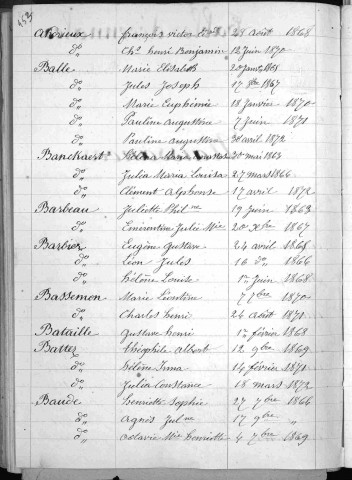 453
François Victor 28 août 1868
do Chs henri Benjamin 12 Juin 1870
Balle Marie Elisabeth 20 Janv 1868
do Jules Joseph 17 8bre 1867
do Marie Euphémie 18 Janvier 1870
do Pauline augustine 7 Juin 1871
do Pauline augustine 30 avril 1872
Banckaert Maria 30 mai 1863
do Julia Maria Louisa 27 mars 1866
do Clément Alphonse 17 avril 1872
Barbeau Juliette Phil ne 19 Juin 1863
do Emerentine Julie Mie 20 xbre 1867
Barbier Eugène Gustave 24 avril 1868
do Léon Jules 16 do 1866
do hélène Louise 1er Juin 1868
Bassemon Marie Léontine 7 7bre 1870
do Charles henri 24 août 1871
Bataille Gustave henri 1er février 1868
Battez théophile Albert 12 9bre 1869
do hélène Irma 14 février 1871
do Julia Constance 18 mars 1872
Baude henriette Sophie 27 7bre 1866
do Agnès Jul ne 17 9bre "
do octavie Mie henriette 4 7bre 1869